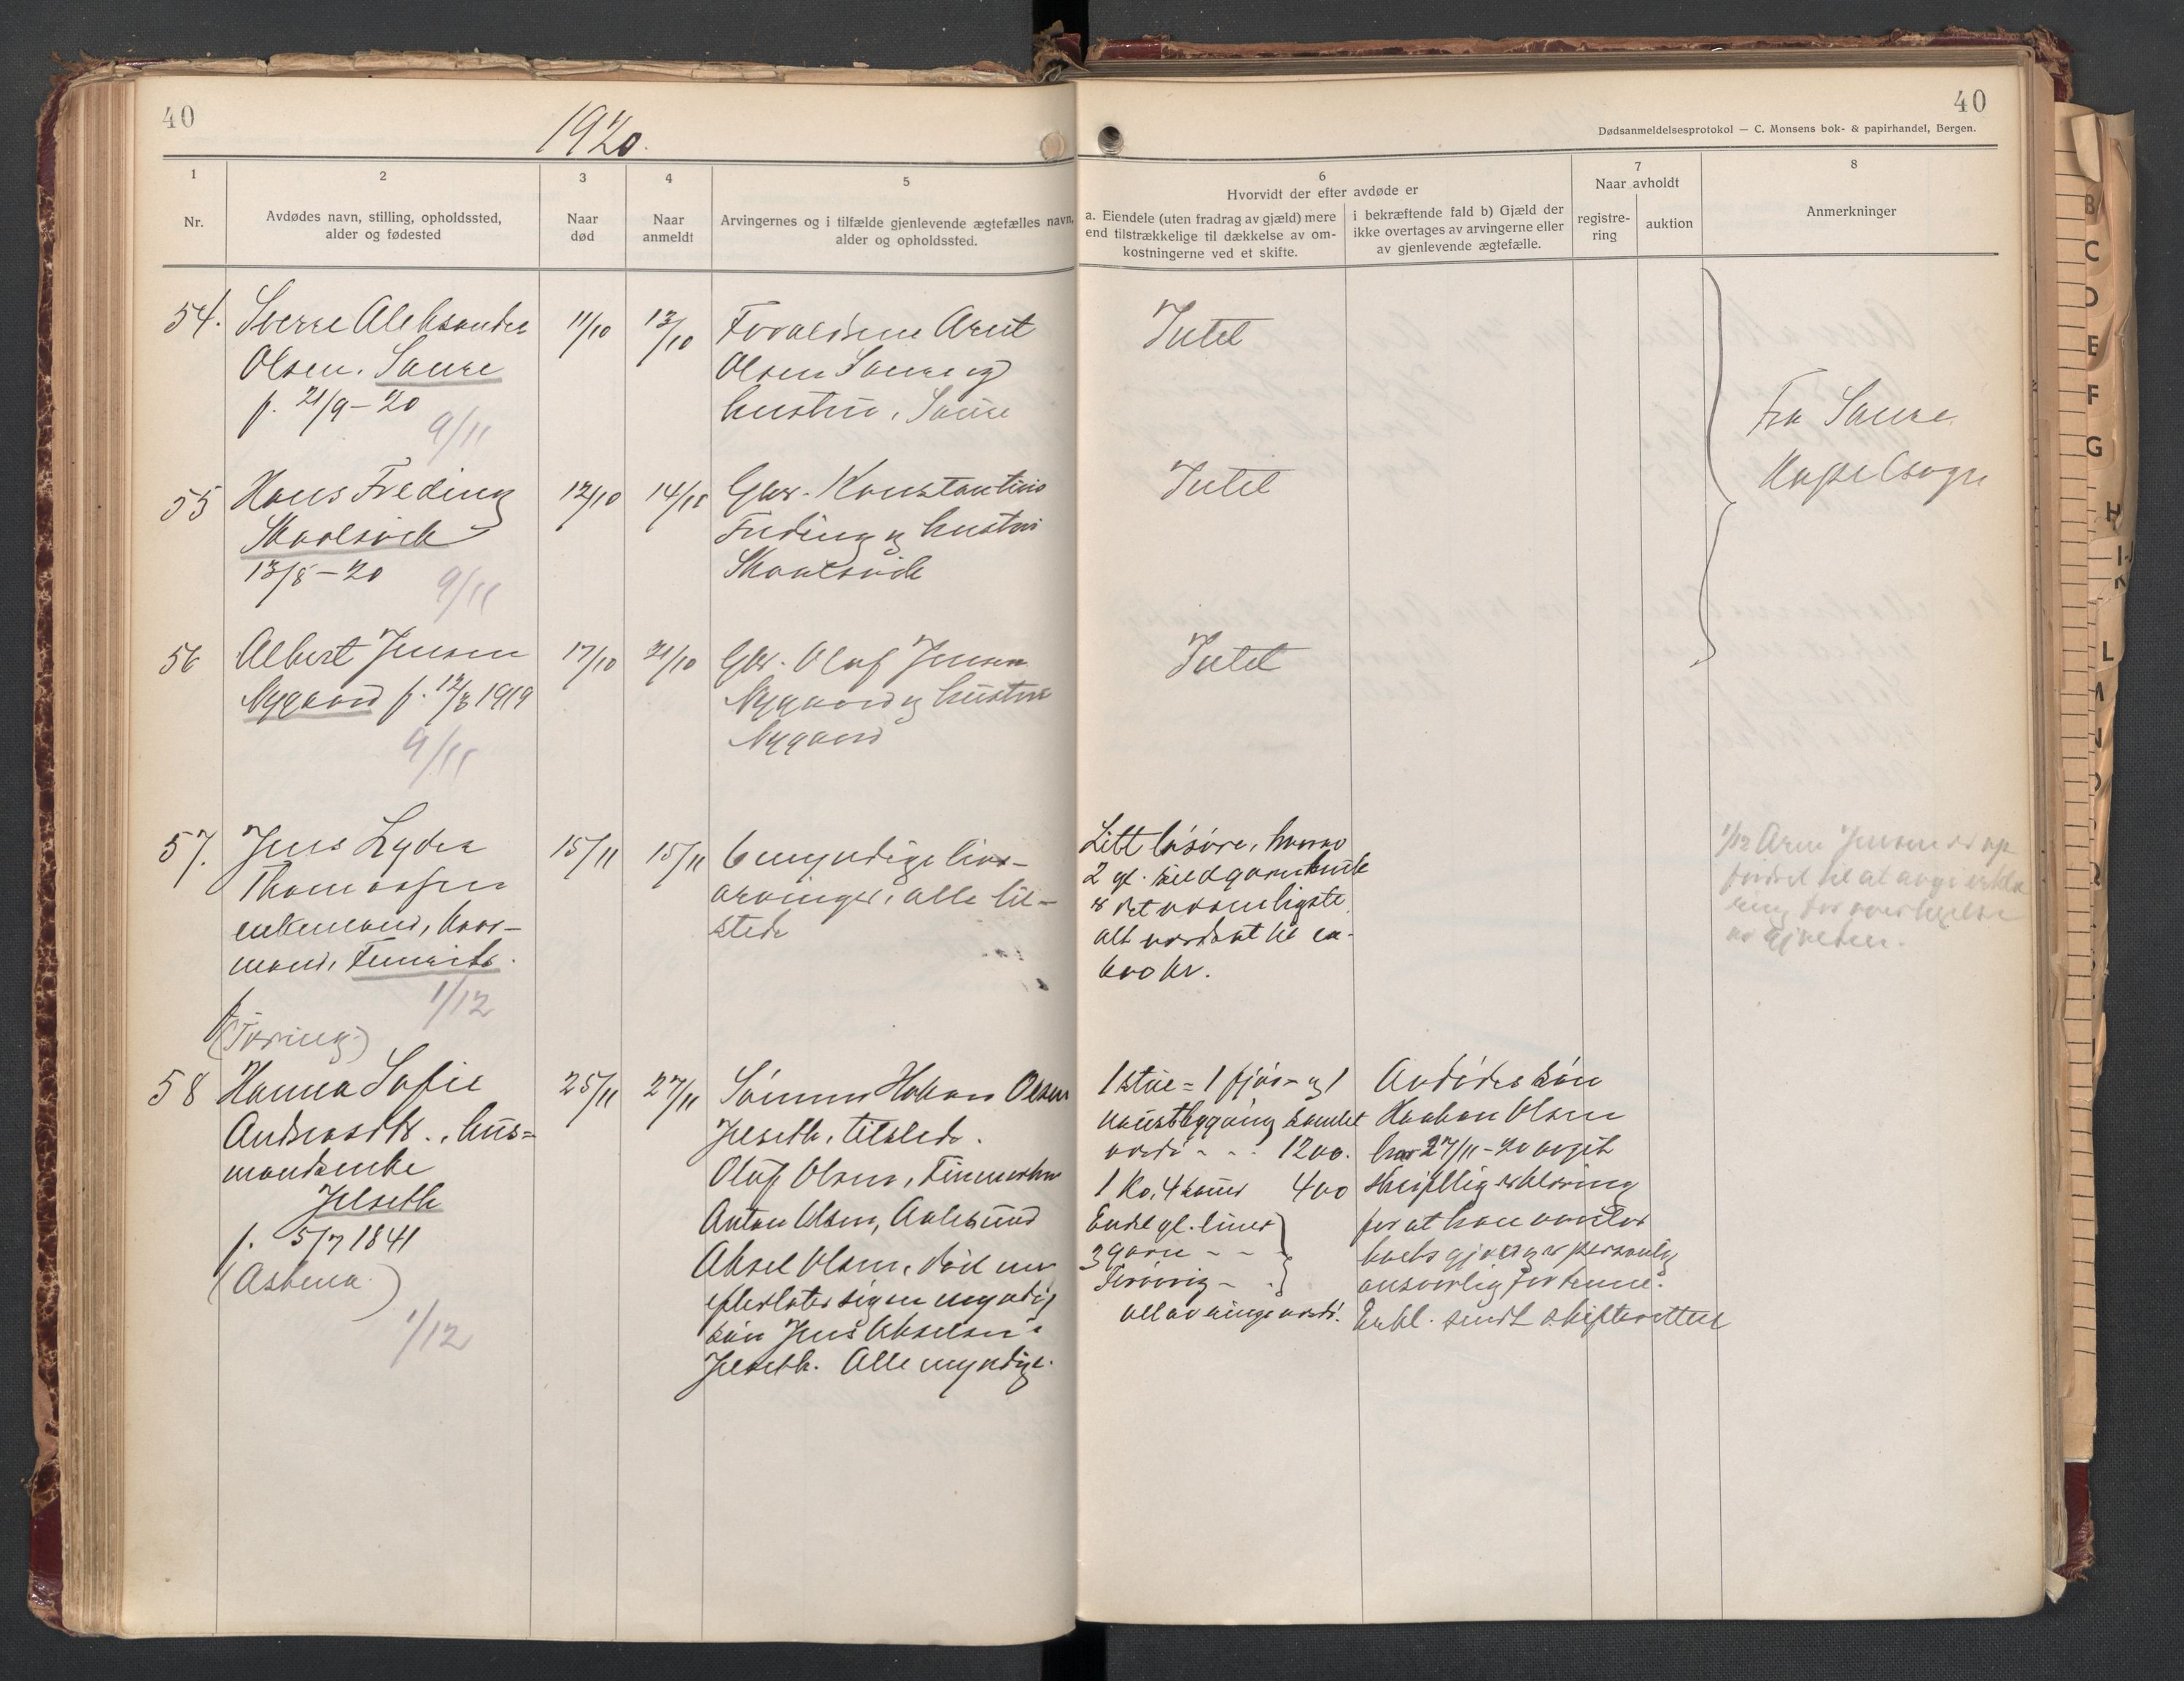 40
1920.
40
Dødsanmeldelsesprotokol — C. Monsens bok- & papirhandel, Bergen.
1
Nr.
2
Avdødes navn, stilling, opholdssted,
alder og fødested
3
Naar
død
4
Naar
anmeldt
5
Arvingernes og i tilfælde gjenlevende ægtefælles navn,
alder og opholdssted.
6
Hvorvidt der efter avdøde er
a. Eiendele (uten fradrag av gjæld) mere
end tilstrækkelige til dækkelse av om-
kostningerne ved et skifte.
i bekræftende fald b) Gjæld der
ikke overtages av arvingerne eller
av gjenlevende ægtefælle.
7
Naar avholdt
registre-
ring
auktion
8
Anmerkninger
54. Sverre Aleksander
Olsen. Saure
f. 21/9-20
9/11
11/10
13/10
Forældrene Arnt
Olsen Saure og
hustru, Saure
Intet
Fra Saure
Kapelsogn
55 Hans Freding
13/8-20
9/11
12/10
Gbr. Konstantin
Freding og hustru
Intet
56 Albert Jensen
Nygaard f. 12/8 1919
9/11
17/10
21/10
Gbr. Olaf Jensen
Nygaard og hustru
Nygaard
Intet
57. Jens Lyder
Thomassen
enkemand, kaar-
mand,
1/12
15/11
15/11
6 myndige livs-
arvinger, alle til-
stede
Litt løsøre, hvorav
2 gl. sildgarnbruk
er det væsenligste
alt vurdert til ca.
600 kr.
1/12 Arn Jensen er op
fordret til at avgi erklæ
ring for overtagelse
av gjælden.
58 Hanna Sofie
Andersdtr., hus=
mandsenke
Jelseth
f. 5/7 1841
(Astma.)
1/12
25/11
27/11
Sønnen Hakon Olsen
Jelseth, tilstede.
Oluf Olsen,
Anton Olsen, Aalesund
Aksel Olsen, død men
efterlater sig en myndig
søn Jens Akselsen
Jelseth. Alle myndige.
1 stue= 1 fjøs- og 1
naustbygging samlet
verdi - - - 1200.
1 Ko, 4 sauer 400
Endel gl. liner
3 garn - - -
alt av ringe verdi.
Avdødes søn
Haakon Olsen
har 27/11-20 avgit
skriftlig erklæring
for at han overtar
boets gjæld og er personlig
ansvarlig for denne.
Erkl. sendt skifteretten